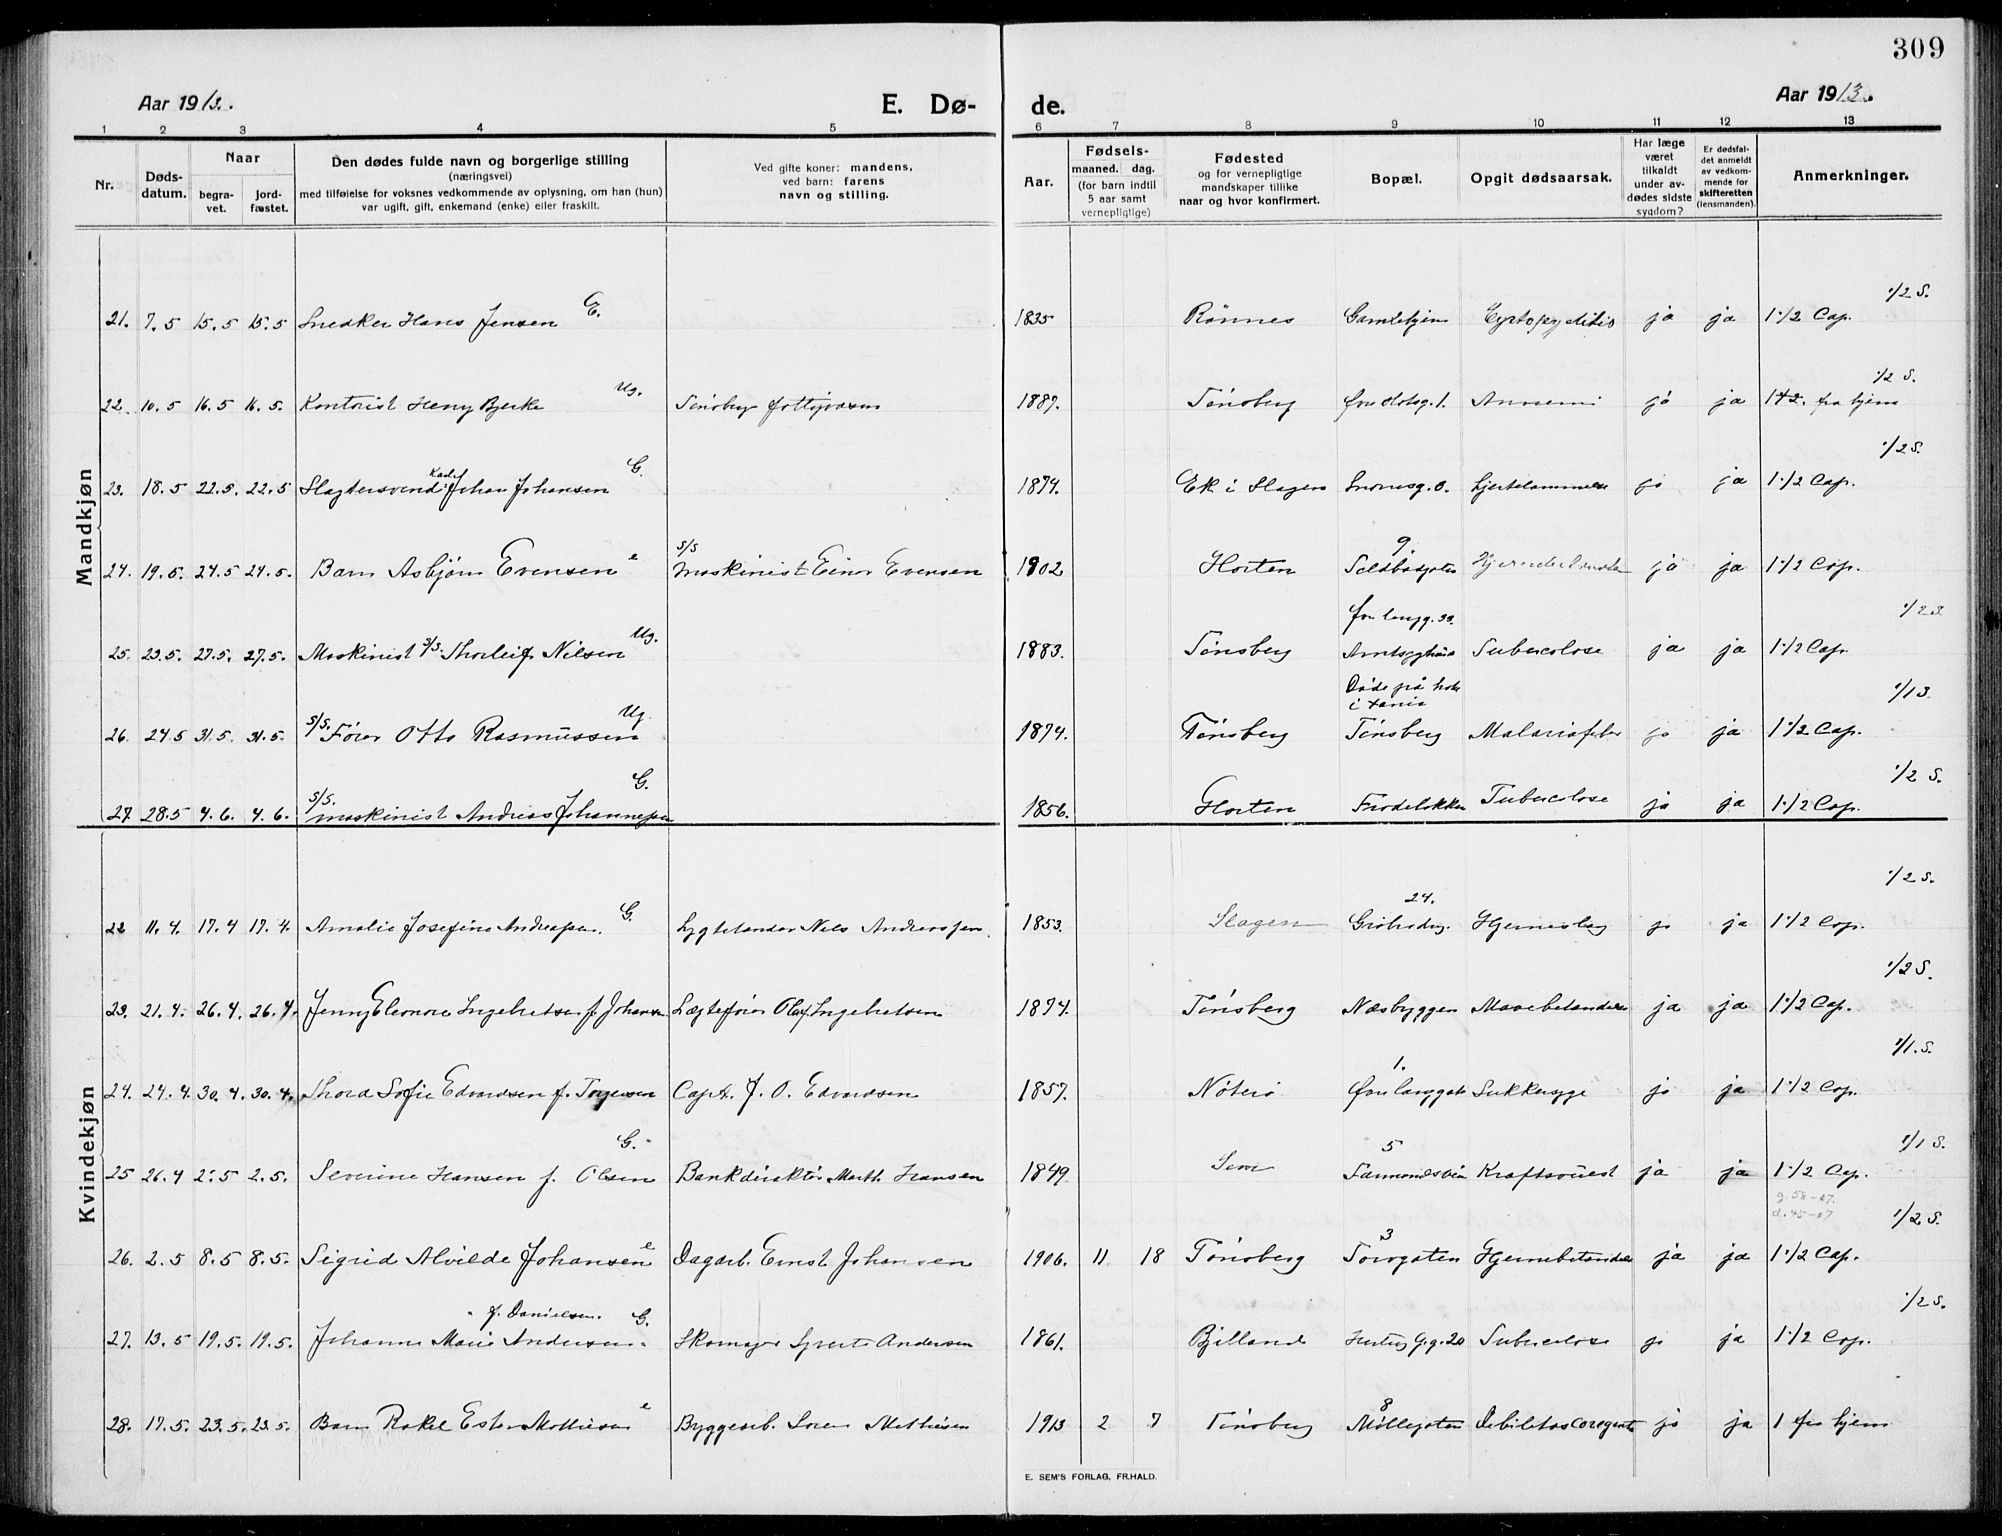 309
Aar 1913.
E. Dø- de.
Aar 1913.
1 2 3 4 5 6 7 8 9 10 11 12 13
Nr.
Døds-datum.
Naar
begra-vet.
jord-fæstet.
Den dødes fulde navn og borgerlige stilling
(næringsvei)
med tilføielse for voksnes vedkommende av oplysning, om han (hun)
var ugift, gift, enkemand (enke) eller fraskilt.
Ved gifte koner: mandens,
ved barn: farens
navn og stilling.
Aar.
Fødsels-
maaned. dag.
(for barn indtil
5 aar samt
vernepligtige)
Fødested
og for vernepligtige
mandskaper tillike
naar og hvor konfirmert.
Bopæl.
Opgit dødsaarsak.
Har læge
været
tilkaldt
under av-
dødes sidste
sygdom?
Er dødsfal-
det anmeldt
av vedkom-
mende for
skifteretten
(lensmanden).
Anmerkninger.
Mandkjøn
1/2 S.
21. 7.5 15.5 15.5 Snedker Hans Jensen E. 1835 Rønnes Gamlehjem ja ja 1 1/2 Cap.
1/2 S.
22. 10.5 16.5 16.5. Kontorist Heny Bjerke Ug. Tønsberg 1887. Tønsberg 1. ja ja fra hjem
1/2 S.
23. 18.5 22.5. 22.5 Slagtersvend Karl Johan Johansen G. 1874. Ek i Slagen ja ja 1 1/2 Cap.
S/S 9.
24. 19.5. 24.5 24.5. Barn Asbjørn Evensen e Maskinist Einar Evensen 1902 Horten ja ja 1 1/2 Cap.
1/2 S.
25. 23.5. 27.5. 27.5. Maskinist S/S. Thorleif Nilsen Ug. 1883. Tønsberg Tubercolose ja ja 1 1/2 Cap.
Døde på
1/1 S.
26. 24.5 31.5. 31.5. S/S. Fører Otto Rasmussen Ug. 1874. Tønsberg Tønsberg Malariafeber ja ja 1 1/2 Cap.
1/2 S.
27. 28.5 4.6. 4.6. S/S. maskinist Andreas Johannessen G. 1856. Horten Fredelokken Tubercolose ja ja 1 1/2 Cap.
Kvindekjøn
1/2 S.
24.
22 11.4. 17.4 17.4. Amalie Josefine Andreassen. G. Lygtetender Nils Andreassen. 1853. Slagen Hjerneslag ja ja 1 1/2 Cap.
1/2 S.
23. 21.4. 26.4. 26.4. Jenny Eleonore Ingebretsen f. Johansen Lægtefører Olaf Ingebretsen 1874. Tønsberg Næsbyggen Mavebetendelse ja ja 1 1/2 Cap.
1/1. S.
1.
24. 24.4. 30.4. 30.4. Thora Sofie Edvardsen f. Torgersen Capt. J. O. Edvardsen 1857. Nøterø Sukkersyge ja ja 1 1/2 Cap.
1/1 S.
5
25 26.4 2.5 2.5. Severine Hansen f. Olsen G. Bankdirektør Marth. Hansen 1849. Sem Kraftsvulst ja ja 1 1/2 Cap.
1/2 S.
3
26. 2.5 8.5 8.5. Sigrid Alvilde Johansen e Dagarb. Ernst Johansen 1906. 11 18 Tønsberg Torvgaten Hjernebetendelse ja ja 1 1/2 Cap.
1/2 S.
f. Danielsen. G.
27. 13.5 19.5. 19.5. Johanne Marie Andersen. Skomager Syvert Andersen 1861. Bjelland Tubercolose ja ja 1 1/2 Cap.
8
28. 17.5. 23.5. 23.5. Barn Rakel Ester Mathiesen e Byggearb. Søren Mathisen 1913 2 7 Tønsberg Møllegaten Debilitas ja ja 1 fra hjem
E. SEM'S FORLAG, FR.HALD.